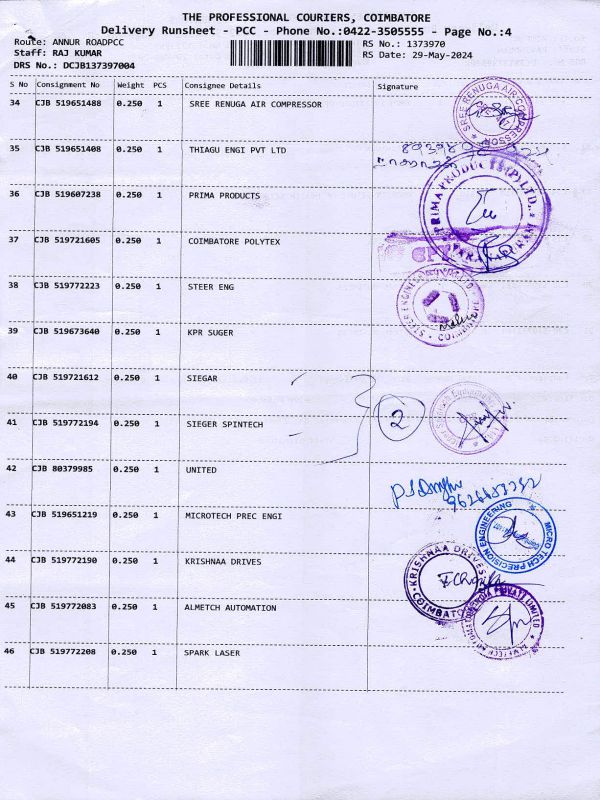 THE PROFESSIONAL COURIERS, COIMBATORE
Delivery Runsheet - PCC - Phone No.:0422-3505555 - Page No.:4
Route: ANNUR ROADPCC
RS No.: 1373970
Staff: RAJ KUMAR
RS Date: 29-May-2024
DRS No.: DCJB137397004
S No Consignment No Weight PCS Consignee Details Signature
34 CJB 519651488 0.250 1 SREE RENUGA AIR COMPRESSOR
SREE RENUGA AIR COMPRESSOR
35 CJB 519651408 0.250 1 THIAGU ENGI PVT LTD
36 CJB 519607238 0.250 1 PRIMA PRODUCTS
PRIMA PRODUCTS (P) LTD.
37 CJB 519721605 0.250 1 COIMBATORE POLYTEX
38 CJB 519772223 0.250 1 STEER ENG
STEER ENGINEERING
39 CJB 519673640 0.250 1 KPR SUGER
40 CJB 519721612 0.250 1 SIEGAR
2
41 CJB 519772194 0.250 1 SIEGER SPINTECH
42 CJB 80379985 0.250 1 UNITED
43 CJB 519651219 0.250 1 MICROTECH PREC ENGI
MICRO TECH PRECISION ENGINEERING
44 CJB 519772190 0.250 1 KRISHNAA DRIVES
KRISHNAA DRIVES
COIMBATORE
45 CJB 519772083 0.250 1 ALMETCH AUTOMATION
PRIVATE LIMITED
46 CJB 519772208 0.250 1 SPARK LASER